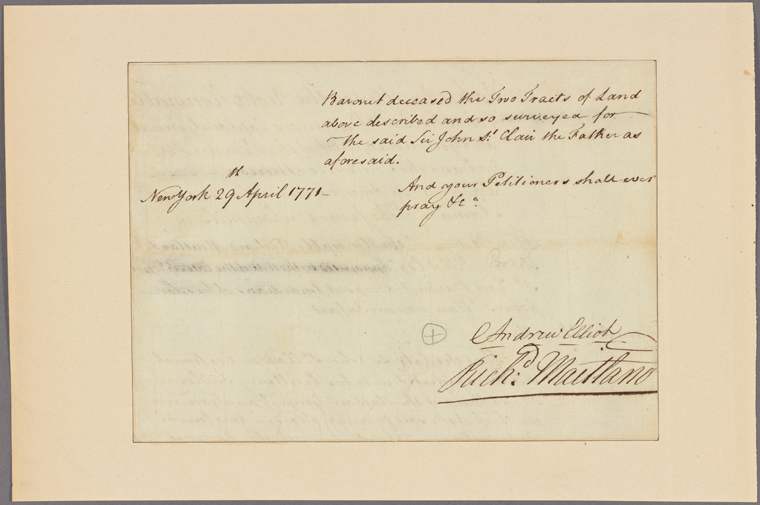 Baronet deceased the Two Tracts of Land
above described and so surveyed for
the said Sir John St. Clair the Father as
aforesaid.
And your Petitioners shall ever
pray &ca.
New York 29th April 1771
Andrew Elliot
Richd. Maitland